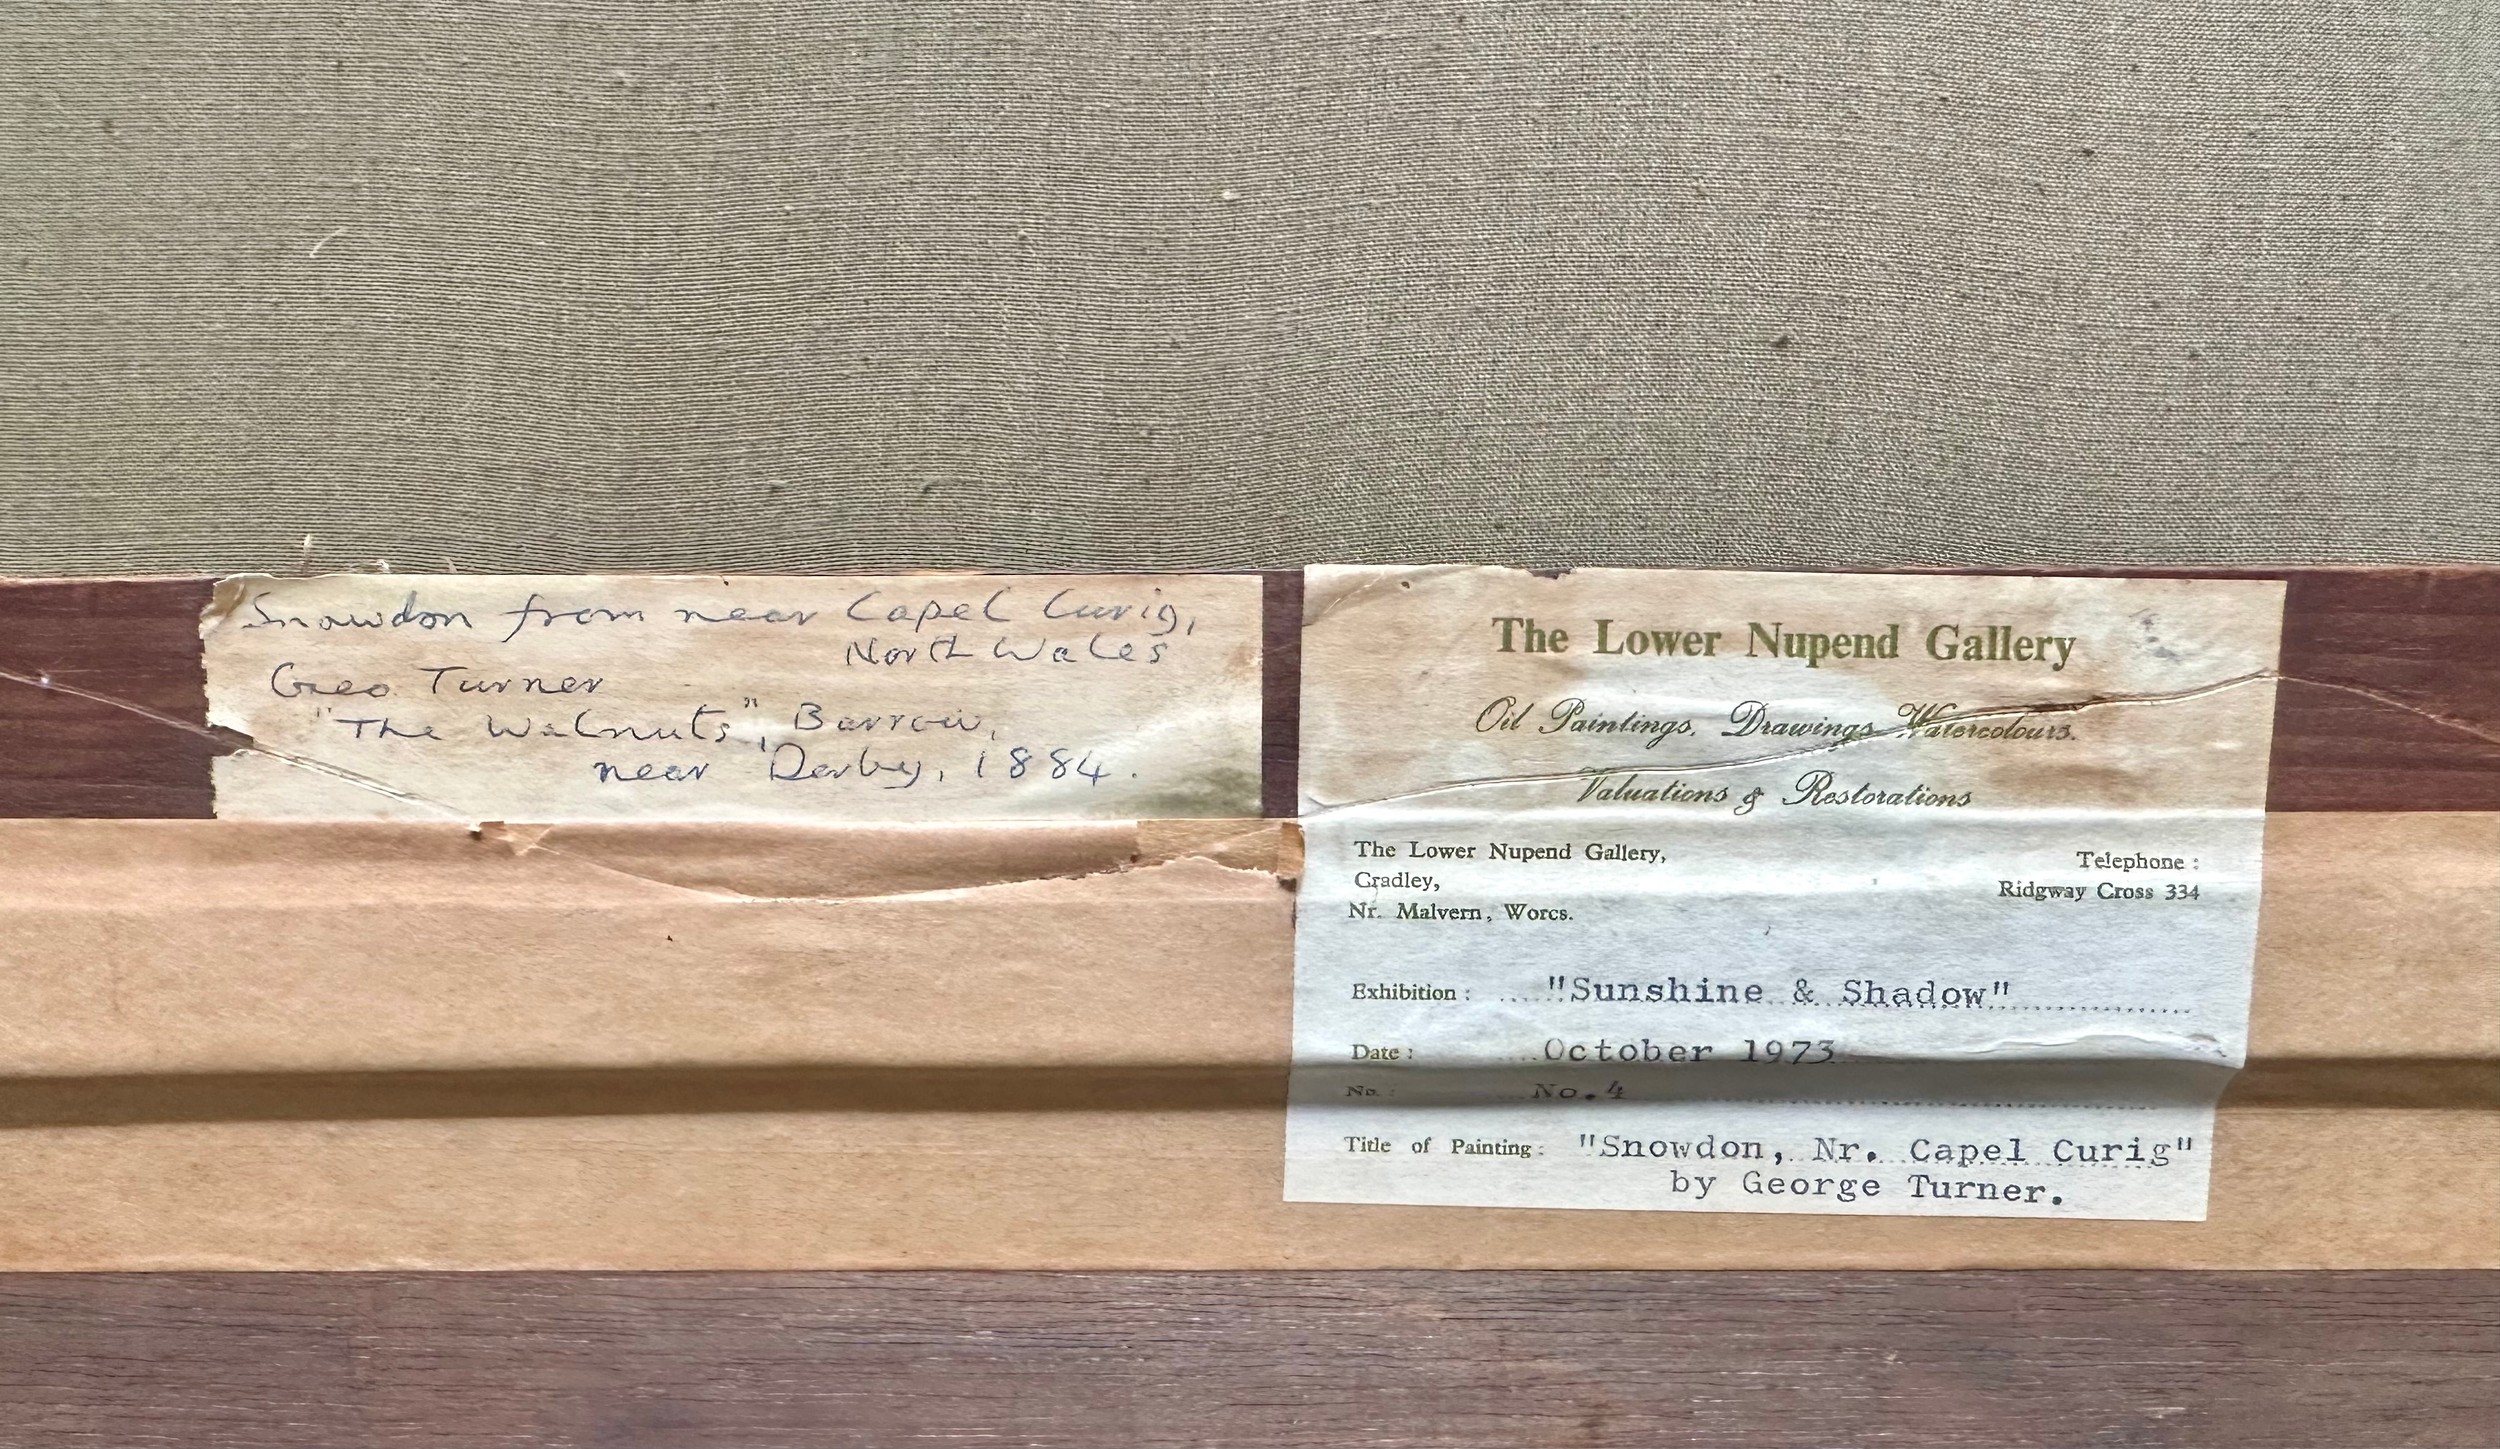 Snowdon from near Capel Curig,
North Wales
Geo. Turner
"The Walnuts", Barrow,
near Derby, 1884.
The Lower Nupend Gallery
Oil Paintings, Drawings, Watercolours.
Valuations & Restorations
The Lower Nupend Gallery,
Cradley,
Nr. Malvern, Worcs.
Telephone :
Ridgway Cross 334
Exhibition : "Sunshine & Shadow"
Date : October 1973
No. : No.4
Title of Painting : "Snowdon, Nr. Capel Curig"
by George Turner.